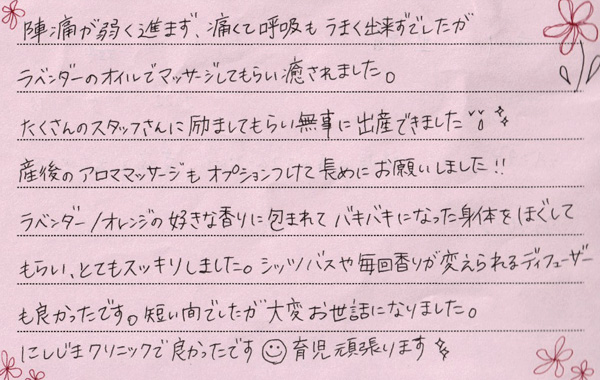 陣痛が弱く進まず、痛くて呼吸もうまく出来ずでしたが
ラベンダーのオイルでマッサージしてもらい癒されました。
たくさんのスタッフさんに励ましてもらい無事に出産できました
産後のアロママッサージもオプションつけて長めにお願いしました!!
ラベンダー/オレンジの好きな香りに包まれてバキバキになった身体をほぐして
もらい、とてもスッキリしました。シッツバスや毎回香りが変えられるディフューザー
も良かったです。短い間でしたが大変お世話になりました。
にしじまクリニックで良かったです☺育児頑張ります